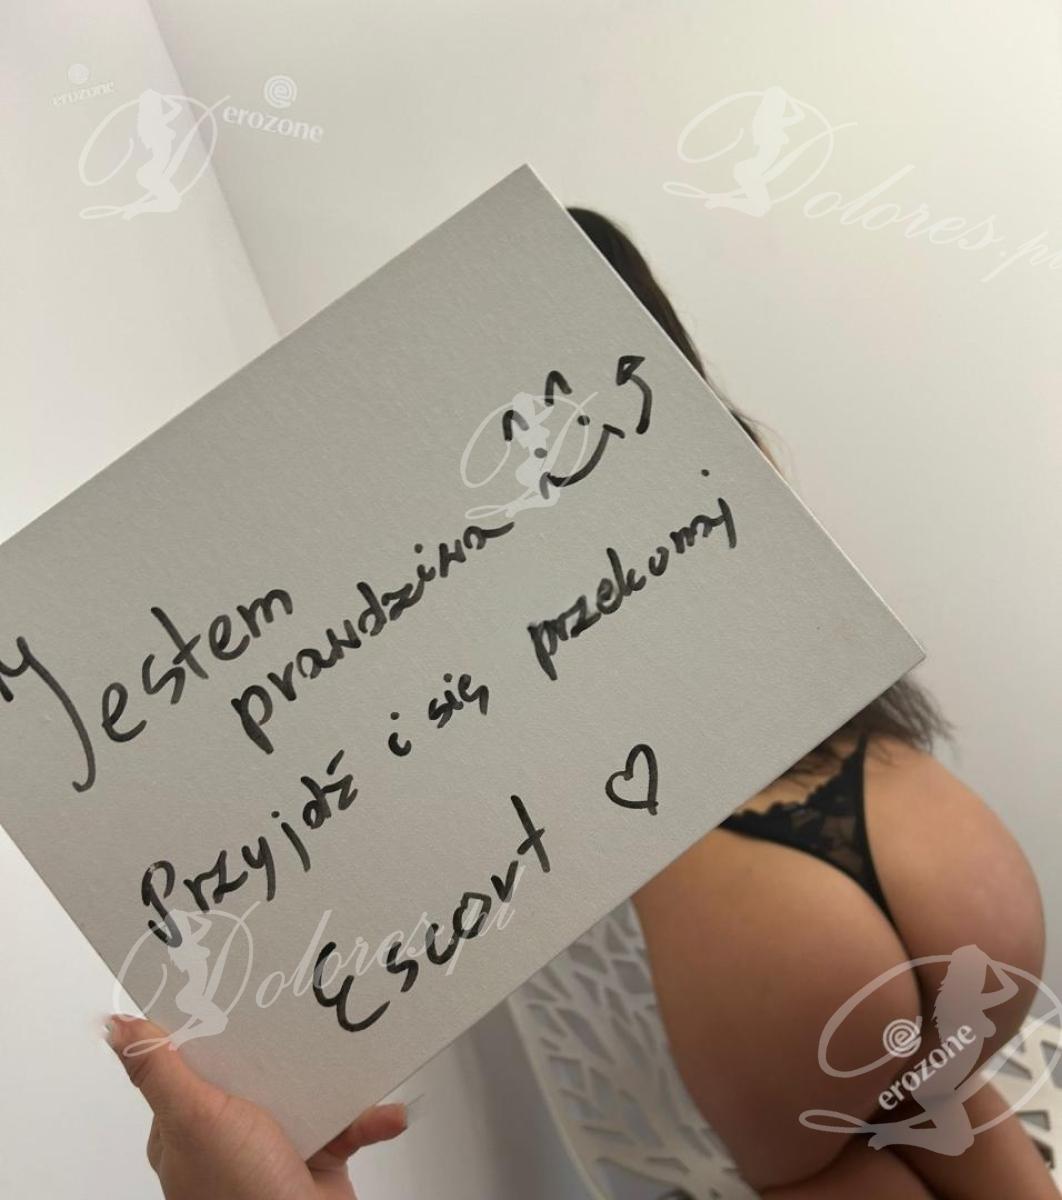 erozone
erozone
Dolores.p
Jestem
prawdziwa
Przyjdź i się przekonaj
Escort ♡
Dolores.pl
erozone